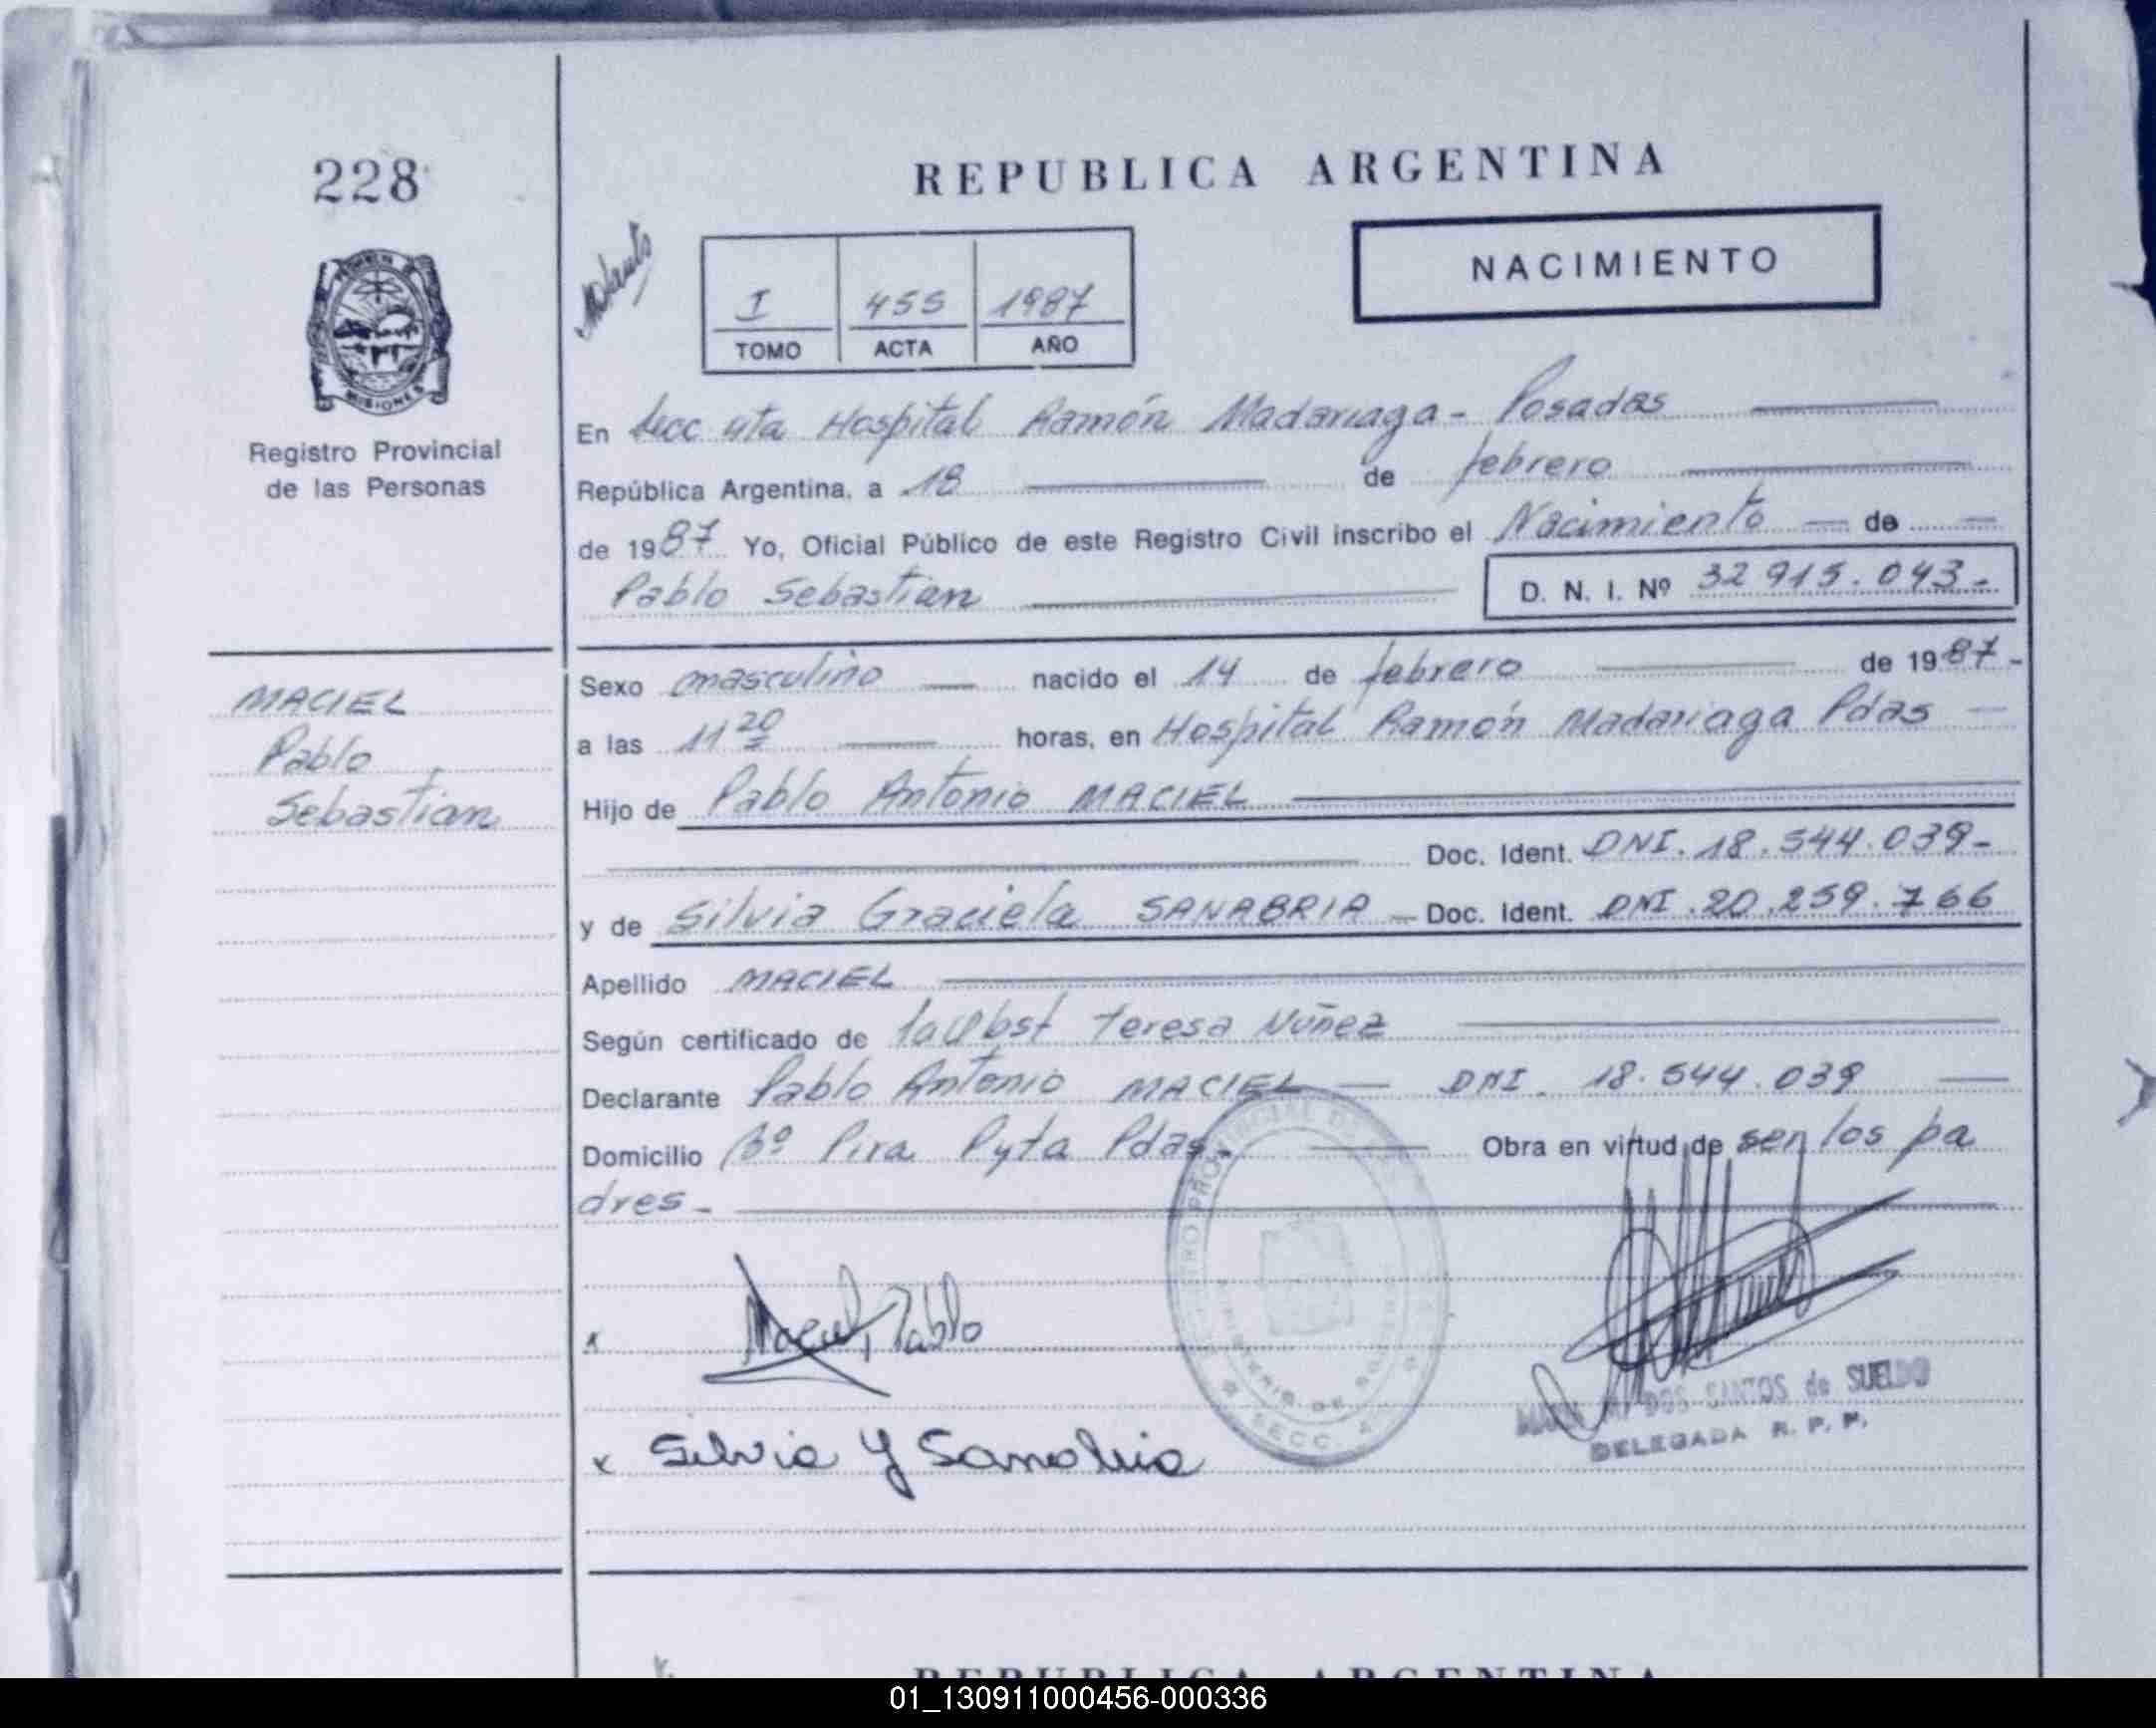 228
REPUBLICA ARGENTINA
NACIMIENTO
I 455 1987
TOMO ACTA AÑO
MISIONES
Registro Provincial
de las Personas
En Secc 4ta Hospital Ramón Madariaga - Posadas
República Argentina, a 18 de febrero
de 1987 Yo, Oficial Público de este Registro Civil inscribo el Nacimiento — de —
Pablo Sebastian D. N. I. Nº 32 915.043.-
MACIEL
Pablo
Sebastian
Sexo masculino — nacido el 14 de febrero de 1987-
a las 11 20 horas, en Hospital Ramón Madariaga Pdas —
Hijo de Pablo Antonio MACIEL
Doc. Ident. DNI. 18.544.039-
y de Silvia Graciela SANABRIA — Doc. Ident. DNI.20.259.766
Apellido MACIEL
Según certificado de Teresa Núñez
Declarante Pablo Antonio MACIEL — DNI. 18.544.039 —
Domicilio Bº Pira Pyta Pdas. Obra en virtud de ser los pa
dres-
x Maciel, Pablo
x Silvia y Sanabria
DOS SANTOS de SUELDO
DELEGADA R. P. P.
REPUBLICA ARGENTINA
01_130911000456-000336